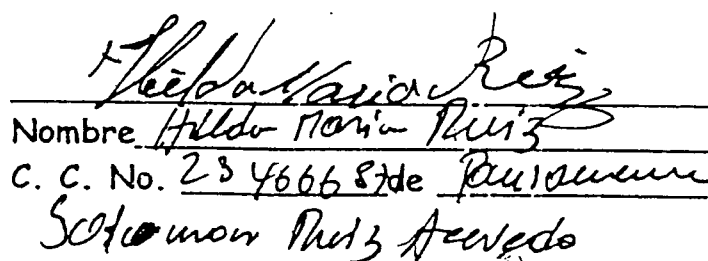 Hilda Maria Ruiz
Nombre Hilda Maria Ruiz
C. C. No. 23466687 de
Ruiz Acevedo